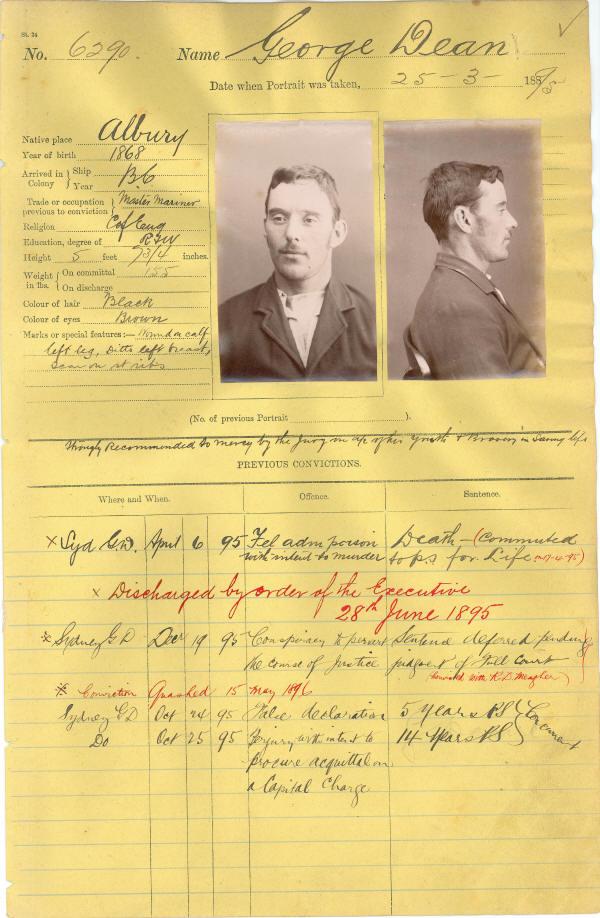 St. 24
No. 6290. Name George Dean
Date when Portrait was taken, 25-3-1895
Native place Albury
Year of birth 1868
Arrived in Colony } Ship B.C
Year
Trade or occupation previous to conviction } Master Mariner
Religion C of Eng
Education, degree of R&W
Height 5 feet 7 3/4 inches.
Weight in lbs. { On committal 155
On discharge
Colour of hair Black
Colour of eyes Brown
Marks or special features:— Wound on calf
left leg, Ditto left breast,
Scar on rt ribs
(No. of previous Portrait ).
Strongly Recommended to mercy by the Jury on a/c of his Youth & Bravery in Saving life
PREVIOUS CONVICTIONS.
Where and When. Offence. Sentence.
× Syd G.D. April 6 95 Fel adm poison with intent to murder Death – (Commuted to p.s for Life
× Discharged by order of the Executive
28th June 1895
× Sydney G D Decr 19 95 Conspiracy to pervert the course of Justice Sentence deferred pending judgment of Full Court
(convicted with R.D. Meagher)
× Conviction Quashed 15 May 1896
Sydney C D Oct 24 95 False declaration 5 Years PS
Do Oct 25 95 Perjury with intent to procure acquittal on a Capital Charge 14 Years PS } Concurrent